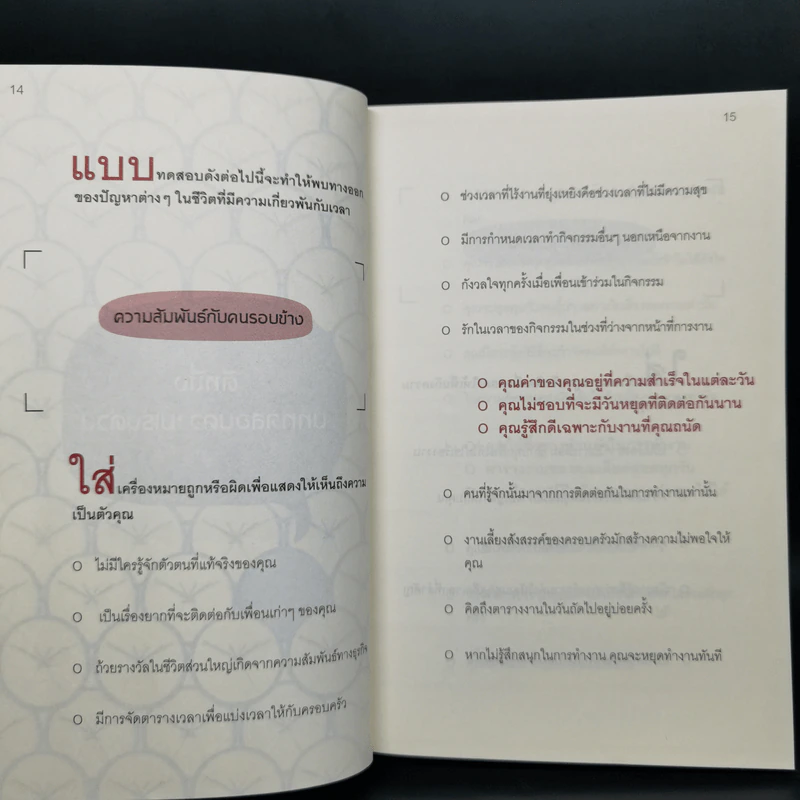 14
แบบทดสอบดังต่อไปนี้จะทำให้พบทางออก
ของปัญหาต่างๆ ในชีวิตที่มีความเกี่ยวพันกับเวลา
ความสัมพันธ์กับคนรอบข้าง
ใส่เครื่องหมายถูกหรือผิดเพื่อแสดงให้เห็นถึงความ
เป็นตัวคุณ
O ไม่มีใครรู้จักตัวตนที่แท้จริงของคุณ
O เป็นเรื่องยากที่จะติดต่อกับเพื่อนเก่าๆ ของคุณ
O ถ้วยรางวัลในชีวิตส่วนใหญ่เกิดจากความสัมพันธ์ทางธุรกิจ
O มีการจัดตารางเวลาเพื่อแบ่งเวลาให้กับครอบครัว
15
O ช่วงเวลาที่ไร้งานที่ยุ่งเหยิงคือช่วงเวลาที่ไม่มีความสุข
O มีการกำหนดเวลาทำกิจกรรมอื่นๆ นอกเหนือจากงาน
O กังวลใจทุกครั้งเมื่อเพื่อนเข้าร่วมในกิจกรรม
O รักในเวลาของกิจกรรมในช่วงที่ว่างจากหน้าที่การงาน
O คุณค่าของคุณอยู่ที่ความสำเร็จในแต่ละวัน
O คุณไม่ชอบที่จะมีวันหยุดที่ติดต่อกันนาน
O คุณรู้สึกดีเฉพาะกับงานที่คุณถนัด
O คนที่รู้จักนั้นมาจากการติดต่อกันในการทำงานเท่านั้น
O งานเลี้ยงสังสรรค์ของครอบครัวมักสร้างความไม่พอใจให้
คุณ
O คิดถึงตารางงานในวันถัดไปอยู่บ่อยครั้ง
O หากไม่รู้สึกสนุกในการทำงาน คุณจะหยุดทำงานทันที